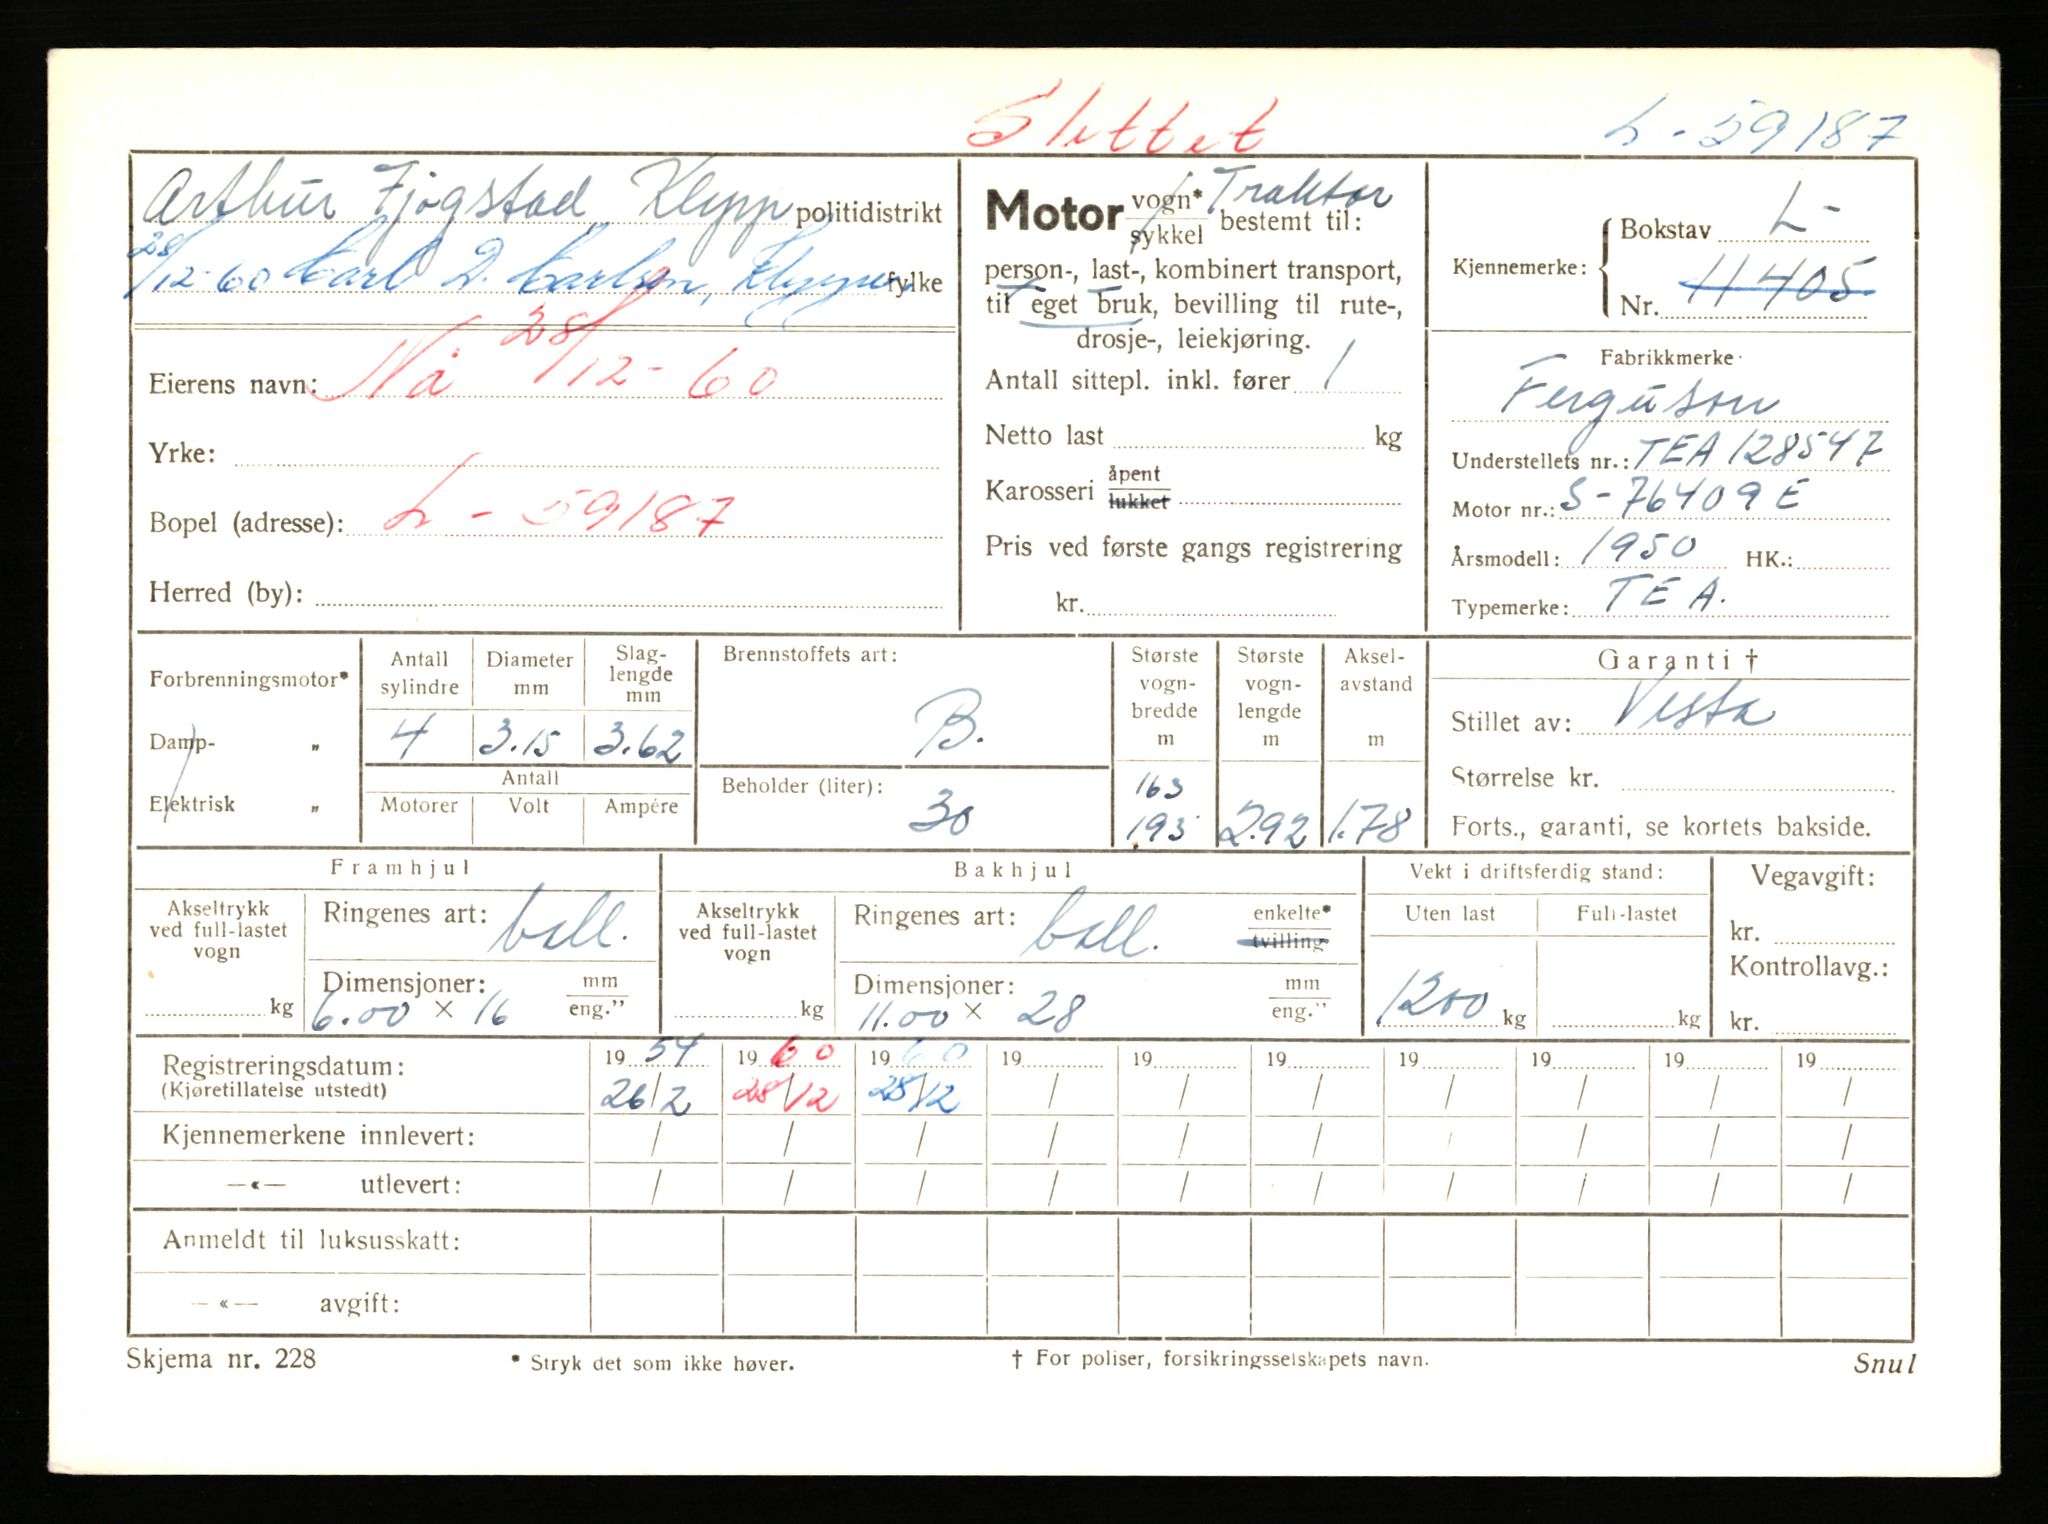 Slettet
L - 59187
Arthur Fjogstad Klepp politidistrikt
28/12-60 Carl D. Carlsen, fylke
Nå 28/12-60
Eierens navn:
Yrke:
Bopel (adresse): L - 59187
Herred (by):
Motor vogn* / sykkel Traktor bestemt til:
person-, last-, kombinert transport,
til eget bruk, bevilling til rute-,
drosje-, leiekjøring.
Antall sittepl. inkl. fører 1
Netto last kg
Karosseri åpent / lukket
Pris ved første gangs registrering
kr.
Kjennemerke: Bokstav L-
Nr. 11405
Fabrikkmerke
Ferguson
Understellets nr.: TEA 128547
Motor nr.: S-76409 E
Årsmodell: 1950 HK.:
Typemerke: TEA.
Forbrenningsmotor*
Damp- „
Elektrisk „
Antall sylindre Diameter mm Slaglengde mm
4 3.15 3.62
Antall
Motorer Volt Ampére
Brennstoffets art:
B.
Beholder (liter):
30
Største vogn-bredde m
163
193
Største vogn-lengde m
2.92
Aksel-avstand m
1.78
Garanti †
Stillet av: Vesta
Størrelse kr.
Forts., garanti, se kortets bakside.
Framhjul
Akseltrykk ved full-lastet vogn
kg
Ringenes art: ball.
Dimensjoner: mm / eng."
6.00 × 16
Bakhjul
Akseltrykk ved full-lastet vogn
kg
Ringenes art: ball. enkelte* / tvilling
Dimensjoner: mm / eng."
11.00 × 28
Vekt i driftsferdig stand:
Uten last Full-lastet
1200 kg kg
Vegavgift:
kr.
Kontrollavg.:
kr.
Registreringsdatum: 19 54 19 60 19 60 19 19 19 19 19 19 19
(Kjøretillatelse utstedt) 26/2 28/12 28/12 / / / / / / /
Kjennemerkene innlevert: / / / / / / / / / /
—«— utlevert: / / / / / / / / / /
Anmeldt til luksusskatt:
—«— avgift:
Skjema nr. 228 * Stryk det som ikke høver. † For poliser, forsikringsselskapets navn. Snul